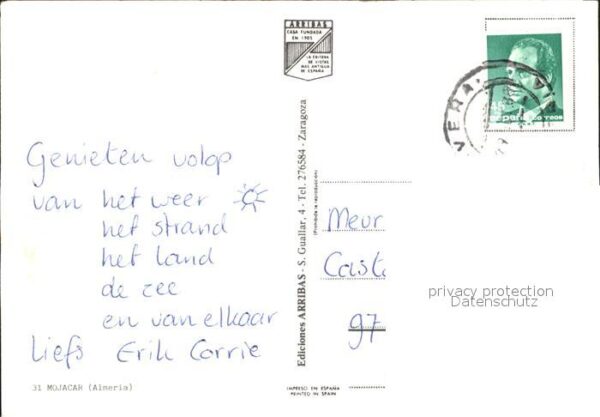 ARRIBAS
CASA FUNDADA
EN 1905
LA EDITORA
DE VISTAS
MAS ANTIGUA
DE ESPAÑA
VERA
45
ESPAÑA CORREOS
Genieten volop
van het weer
het strand
het land
de zee
en van elkaar
Liefs Erik Corrie
31 MOJACAR (Almeria)
Ediciones ARRIBAS - S. Guallar, 4 - Tel. 276584 - Zaragoza
(Prohibida la reproducción)
IMPRESO EN ESPAÑA
PRINTED IN SPAIN
Meur
Caste
97
privacy protection
Datenschutz